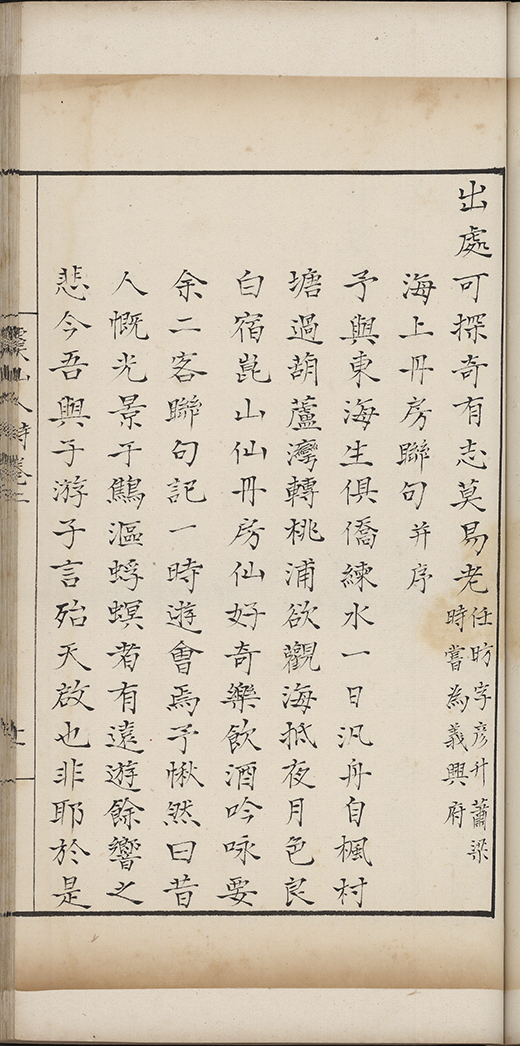 出處可探奇有志莫易老任昉字彥升蕭梁時嘗為義興府
海上丹房聯句并序
予與東海生俱僑練水一日汎舟自楓村
塘過葫蘆灣轉桃浦欲觀海抵夜月色良
白宿崑山仙丹房仙好奇樂飲酒吟咏要
余二客聯句記一時遊會焉予愀然曰昔
人慨光景于鷦漚蜉螟者有遠遊餘響之
悲今吾與子游子言殆天啟也非耶於是
山人詩卷二